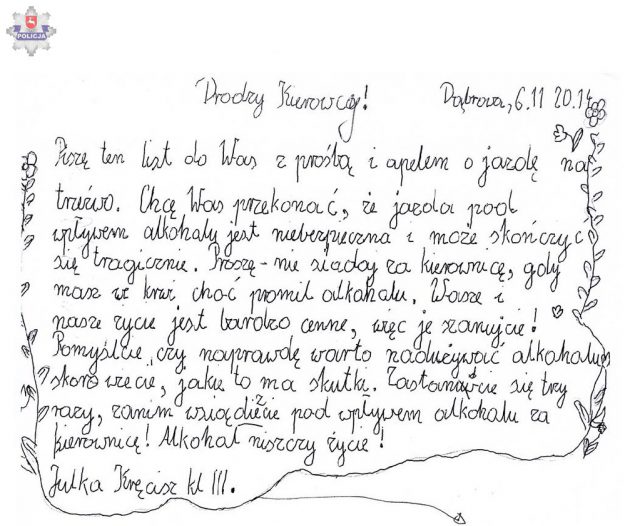 POLICJA
Drodzy Kierowcy!
Dąbrowa, 6.11 2014
Piszę ten list do Was z prośbą i apelem o jazdę na
trzeźwo. Chcę Was przekonać, że jazda pod
wpływem alkoholu jest niebezpieczna i może skończyć
się tragicznie. Proszę - nie siadaj za kierownicę, gdy
masz w krwi choć promil alkoholu. Wasze i
nasze życie jest bardzo cenne, więc je szanujcie!
Pomyślcie, czy naprawdę warto nadużywać alkoholu,
skoro wiecie, jakie to ma skutki. Zastanówcie się trzy
razy, zanim wsiądziecie pod wpływem alkoholu za
kierownicę! Alkohol niszczy życie!
Julka Kręcisz kl III.